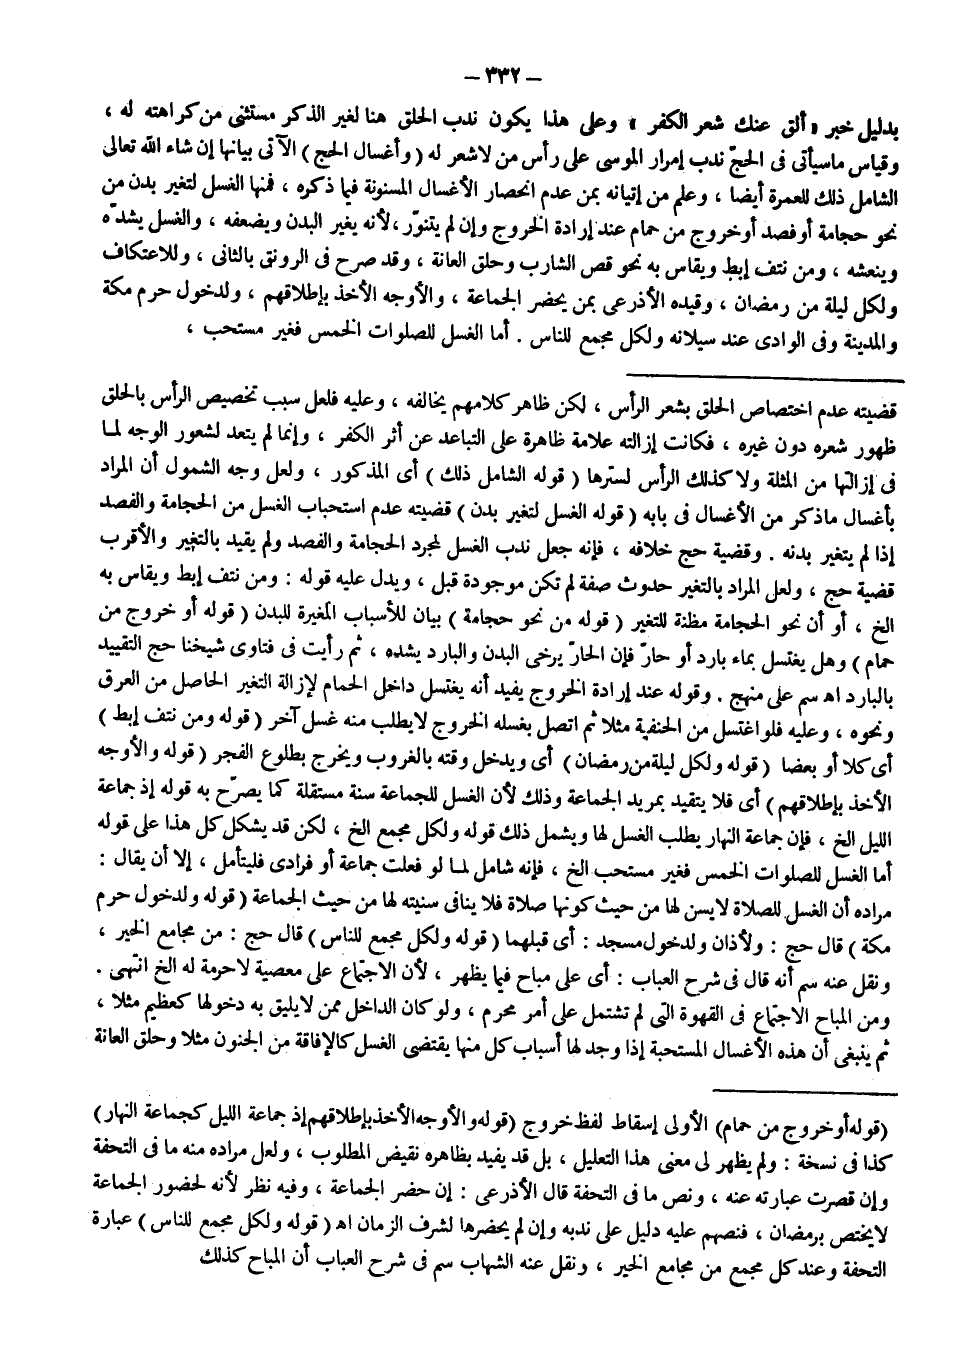 – ٣٣٢ –
بدليل خبر « ألق عنك شعر الكفر » وعلى هذا يكون ندب الحلق هنا لغير الذكر مستثنى من كراهته له ،
وقياس ماسيأتى فى الحجّ ندب إمرار الموسى على رأس من لاشعر له ( وأغسال الحج ) الآتى بيانها إن شاء الله تعالى
الشامل ذلك للعمرة أيضا ، وعلم من إتيانه بمن عدم انحصار الأغسال المسنونة فيما ذكره ، فمنها الغسل لتغير بدن من
نحو حجامة أوفصد أوخروج من حمام عند إرادة الخروج وإن لم يتنوّر ،لأنه يغير البدن ويضعفه ، والغسل يشدّه
وينعشه ، ومن نتف إبط ويقاس به نحو قص الشارب وحلق العانة ، وقد صرح فى الرونق بالثانى ، وللاعتكاف
ولكل ليلة من رمضان ، وقيده الأذرعى بمن يحضر الجماعة ، والأوجه الأخذ بإطلاقهم ، ولدخول حرم مكة
والمدينة وفى الوادى عند سيلانه ولكل مجمع للناس . أما الغسل للصلوات الخمس فغير مستحب ،
قضيته عدم اختصاص الحلق بشعر الرأس ، لكن ظاهر كلامهم يخالفه ، وعليه فلعل سبب تخصيص الرأس بالحلق
ظهور شعره دون غيره ، فكانت إزالته علامة ظاهرة على التباعد عن أثر الكفر ، وإنما لم يتعد لشعور الوجه لما
فى إزالتها من المثلة ولا كذلك الرأس لسترها ( قوله الشامل ذلك ) أى المذكور ، ولعل وجه الشمول أن المراد
بأغسال ماذكر من الأغسال فى بابه ( قوله الغسل لتغير بدن ) قضيته عدم استحباب الغسل من الحجامة والفصد
إذا لم يتغير بدنه . وقضية حج خلافه ، فإنه جعل ندب الغسل لمجرد الحجامة والفصد ولم يقيد بالتغير والأقرب
قضية حج ، ولعل المراد بالتغير حدوث صفة لم تكن موجودة قبل ، ويدل عليه قوله : ومن نتف إبط ويقاس به
الخ ، أو أن نحو الحجامة مظنة للتغير ( قوله من نحو حجامة ) بيان للأسباب المغيرة للبدن ( قوله أو خروج من
حمام ) وهل يغتسل بماء بارد أو حارّ فإن الحارّ يرخى البدن والبارد يشده ، ثم رأيت فى فتاوى شيخنا حج التقييد
بالبارد اه سم على منهج . وقوله عند إرادة الخروج يفيد أنه يغتسل داخل الحمام لإزالة التغير الحاصل من العرق
ونحوه ، وعليه فلو اغتسل من الحنفية مثلا ثم اتصل بغسله الخروج لايطلب منه غسل آخر ( قوله ومن نتف إبط )
أى كلا أو بعضا ( قوله ولكل ليلة من رمضان ) أى ويدخل وقته بالغروب ويخرج بطلوع الفجر ( قوله والأوجه
الأخذ بإطلاقهم ) أى فلا يتقيد بمريد الجماعة وذلك لأن الغسل للجماعة سنة مستقلة كما يصرّح به قوله إذ جماعة
الليل الخ ، فإن جماعة النهار يطلب الغسل لها ويشمل ذلك قوله ولكل مجمع الخ ، لكن قد يشكل كل هذا على قوله
أما الغسل للصلوات الخمس فغير مستحب الخ ، فإنه شامل لما لو فعلت جماعة أو فرادى فليتأمل ، إلا أن يقال :
مراده أن الغسل للصلاة لايسن لها من حيث كونها صلاة فلا ينافى سنيته لها من حيث الجماعة ( قوله ولدخول حرم
مكة ) قال حج : ولأذان ولدخول مسجد : أى قبلهما ( قوله ولكل مجمع للناس ) قال حج : من مجامع الخير ،
ونقل عنه سم أنه قال فى شرح العباب : أى على مباح فيما يظهر ، لأن الاجتماع على معصية لاحرمة له الخ انتهى .
ومن المباح الاجتماع فى القهوة التى لم تشتمل على أمر محرم ، ولو كان الداخل ممن لايليق به دخولها كعظيم مثلا ،
ثم ينبغى أن هذه الأغسال المستحبة إذا وجد لها أسباب كل منها يقتضى الغسل كالإفاقة من الجنون مثلا وحلق العانة
( قوله أو خروج من حمام ) الأولى إسقاط لفظ خروج ( قوله والأوجه الأخذ بإطلاقهم إذ جماعة الليل كجماعة النهار )
كذا فى نسخة : ولم يظهر لى معنى هذا التعليل ، بل قد يفيد بظاهره نقيض المطلوب ، ولعل مراده منه ما فى التحفة
وإن قصرت عبارته عنه ، ونص ما فى التحفة قال الأذرعى : إن حضر الجماعة ، وفيه نظر لأنه لحضور الجماعة
لايختص برمضان ، فنصهم عليه دليل على ندبه وإن لم يحضرها لشرف الزمان اه ( قوله ولكل مجمع للناس ) عبارة
التحفة وعند كل مجمع من مجامع الخير ، ونقل عنه الشهاب سم فى شرح العباب أن المباح كذلك